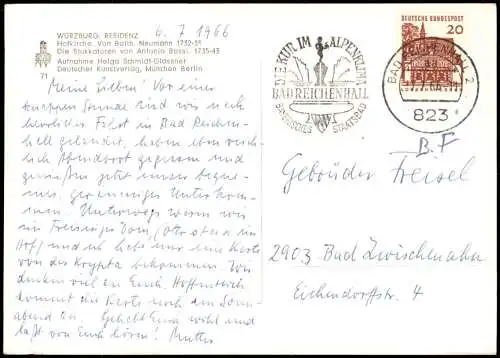 WÜRZBURG, RESIDENZ
Hofkirche. Von Balth. Neumann 1732-51
Die Stukkaturen von Antonio Bossi. 1735-43
Aufnahme Helga Schmidt-Glassner
Deutscher Kunstverlag, München Berlin
71
6.7.1966
Meine Lieben! Vor einer
knappen Stunde sind wir nach
herrlicher Fahrt in Bad Reichen-
hall gelandet, haben eben
Abendbrot gegessen und
genießen jetzt unser beque-
mes, geräumiges Unterkom-
men. Unterwegs waren wir
im Freisinger Dom, (Otto stand im
Hof) und ich hätte mir eine Karte
von der Krypta bekommen. Wir
denken viel an Euch. Hoffentlich
kommt die Karte noch am Sonn-
abend an. Gehabt Euch wohl und
laßt von Euch hören! Mutter
DIE KUR IM ALPENKLIMA
BAD REICHENHALL
BAYERISCHES STAATSBAD
DEUTSCHE BUNDESPOST
20
BAD REICHENHALL 2
823
B.F
Gebrüder Freisel
2903 Bad Zwischenahn
Eichendorffstr. 4